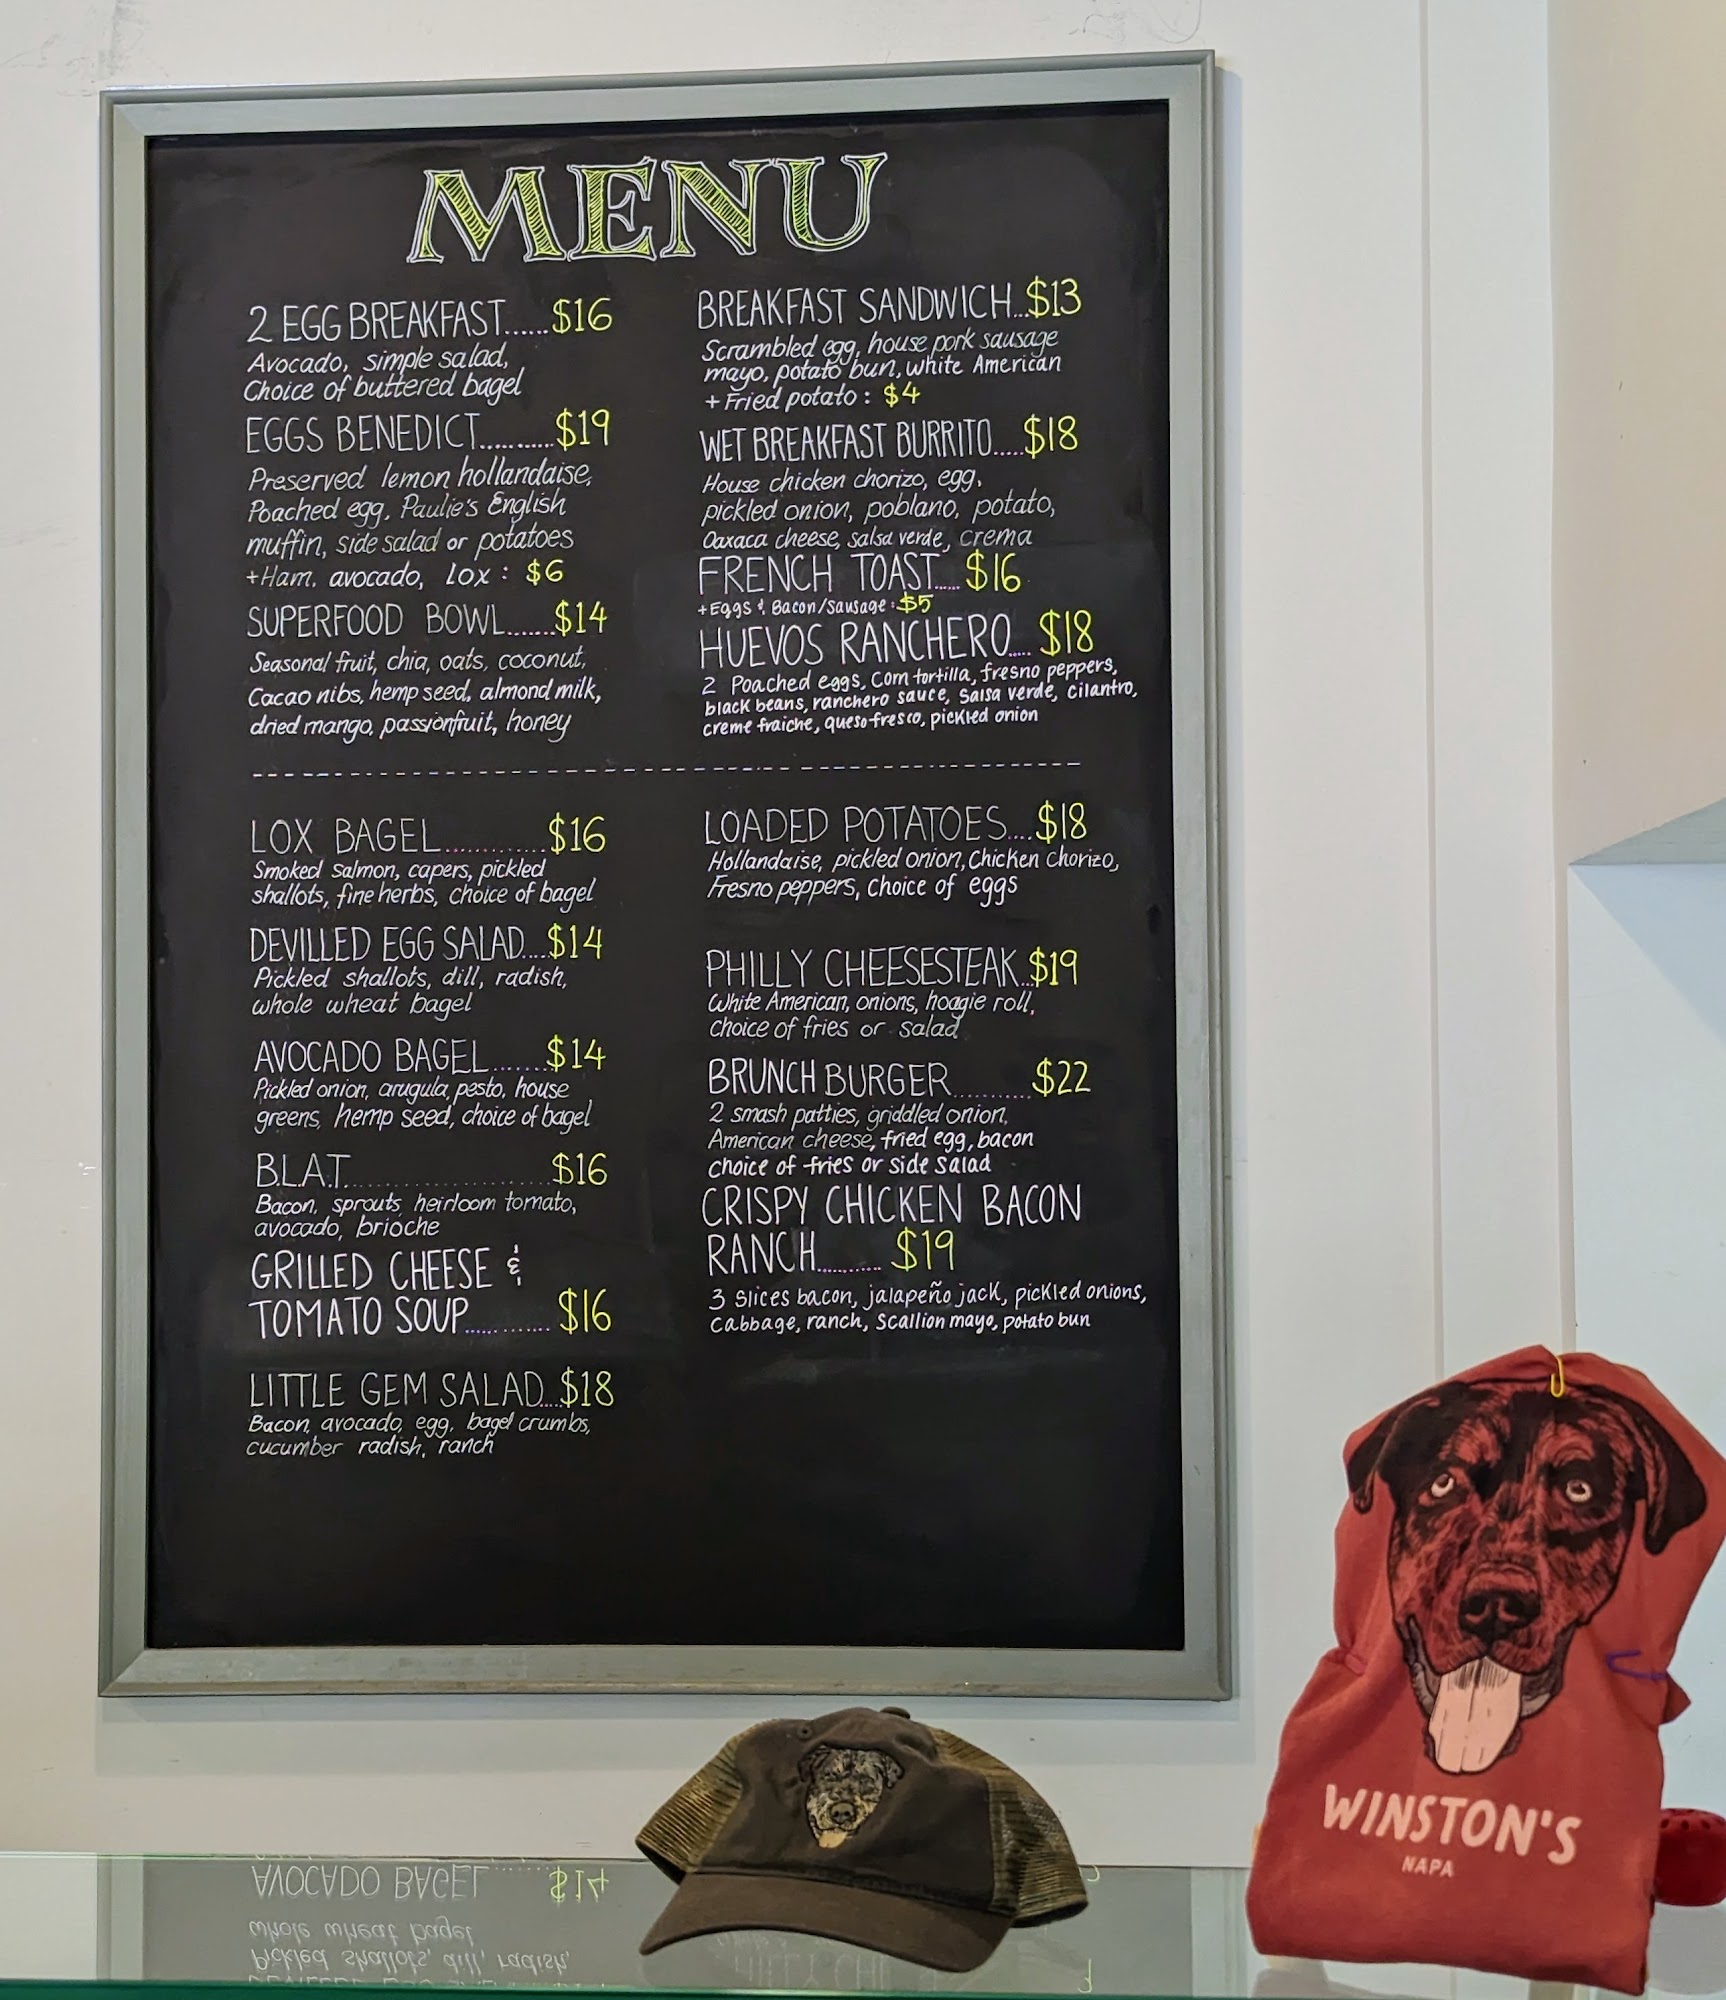 MENU
2 EGG BREAKFAST......$16
Avocado, simple salad,
Choice of buttered bagel
EGGS BENEDICT...........$19
Preserved lemon hollandaise,
Poached egg, Paulie's English
muffin, side salad or potatoes
+Ham, avocado, lox: $6
SUPERFOOD BOWL.......$14
Seasonal fruit, chia, oats, coconut,
Cacao nibs, hemp seed, almond milk,
dried mango, passionfruit, honey
BREAKFAST SANDWICH...$13
Scrambled egg, house pork sausage
mayo, potato bun, white American
+ Fried potato: $4
WET BREAKFAST BURRITO.....$18
House chicken chorizo, egg,
pickled onion, poblano, potato,
Oaxaca cheese, salsa verde, crema
FRENCH TOAST..... $16
+Eggs & Bacon/Sausage: $5
HUEVOS RANCHERO..... $18
2 Poached eggs, Corn tortilla, fresno peppers,
black beans, ranchero sauce, Salsa verde, cilantro,
creme fraiche, queso fresco, pickled onion
LOX BAGEL.............$16
Smoked salmon, capers, pickled
shallots, fine herbs, choice of bagel
DEVILLED EGG SALAD.....$14
Pickled shallots, dill, radish,
whole wheat bagel
AVOCADO BAGEL.......$14
Pickled onion, arugula, pesto, house
greens, hemp seed, choice of bagel
B.L.A.T.......................$16
Bacon, sprouts, heirloom tomato,
avocado, brioche
GRILLED CHEESE &
TOMATO SOUP............ $16
LITTLE GEM SALAD.....$18
Bacon, avocado, egg, bagel crumbs,
cucumber radish, ranch
LOADED POTATOES....$18
Hollandaise, pickled onion, Chicken chorizo,
Fresno peppers, choice of eggs
PHILLY CHEESESTEAK...$19
White American, onions, hoagie roll,
choice of fries or salad
BRUNCH BURGER...........$22
2 smash patties, griddled onion,
American cheese, fried egg, bacon
choice of fries or side salad
CRISPY CHICKEN BACON
RANCH.......... $19
3 Slices bacon, jalapeño jack, pickled onions,
Cabbage, ranch, Scallion mayo, potato bun
WINSTON'S
NAPA
AVOCADO BAGEL........ $14
whole wheat bagel
Pickled shallots, dill, radish,